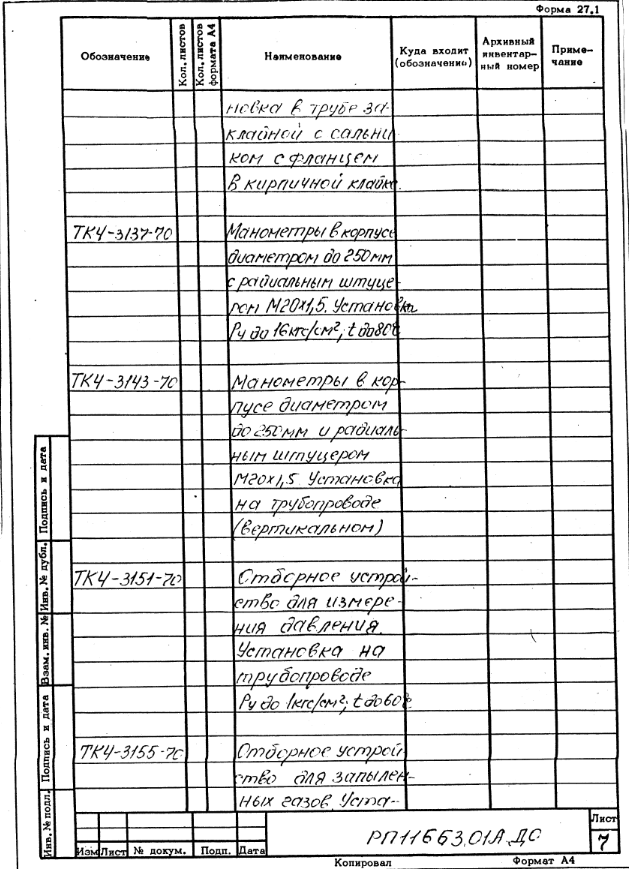 Форма 27.1
Обозначение Кол. листов Кол. листов формата А4 Наименование Куда входит (обозначение) Архивный инвентарный номер Примечание
новка в трубе за-
кладной с сальни
ком с фланцем
в кирпичной кладке
ТК4-3137-70 Манометры в корпусе
диаметром до 250мм
с радиальным штуце
ром М20х1,5. Установка
Ру до 16кгс/см²; t до 80°
ТК4-3143-70 Манометры в кор-
пусе диаметром
до 250мм и радиаль-
ным штуцером
М20х1,5 Установка
на трубопроводе
(вертикальном)
ТК4-3151-70 Отборное устрой-
ство для измере-
ния давления.
Установка на
трубопроводе
Ру до 1кгс/см²; t до 60°
ТК4-3155-70 Отборное устрой
ство для запылен-
ных газов. Уста-
Инв. № подл. Подпись и дата Взам. инв. № Инв. № дубл. Подпись и дата
РП11663.01А.ДО
Лист
7
Изм Лист № докум. Подп. Дата
Копировал Формат А4